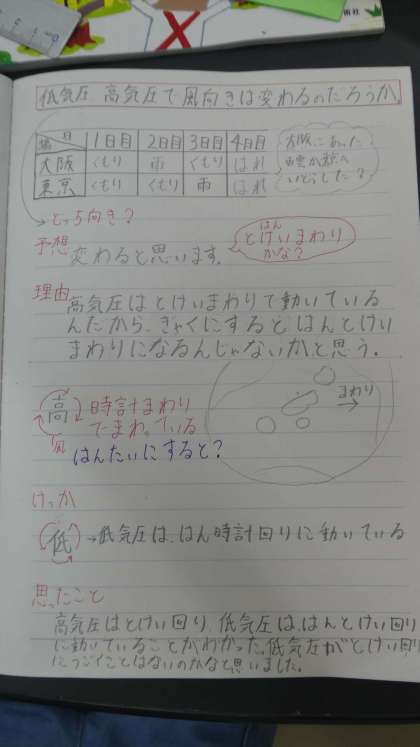 低気圧 高気圧で風向きは変わるのだろうか。
日 1日目 2日目 3日目 4日目
大阪 くもり 雨 くもり はれ
東京 くもり くもり 雨 はれ
大阪にあった
雲が東京へ
いどうした?
→どっち向き?
予想 変わると思います。
はん
とけいまわり
かな?
理由
高気圧はとけいまわりで動いている
んだから、ぎゃくにすると はんとけい
まわりになるんじゃないかと思う。
高 時計まわり
でまわっている
風
はんたいにすると?
まわり
→
けっか
低 →低気圧は、はん時計回りに動いている
思ったこと
高気圧はとけい回り、低気圧は、はんとけい回り
に動いていることがわかった。低気圧がとけい回り
にうごくことはないのかなと思いました。